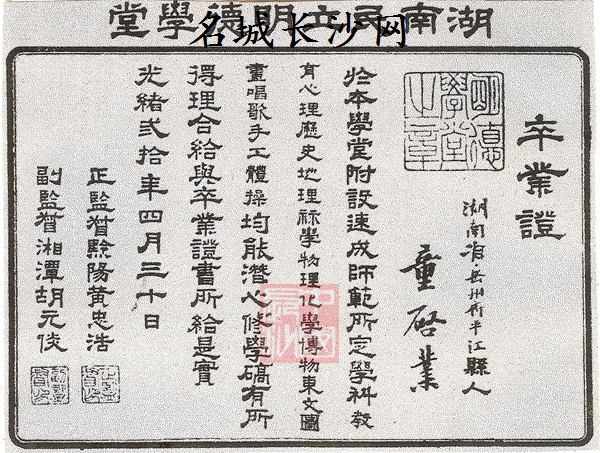 湖南民立明德學堂
名城长沙网
卒業證
湖南省岳州府平江縣人
童啓業
明德學堂之章
於本學堂附設速成師範所定學科教
育心理歷史地理祘學物理化學博物東文圖
畫唱歌手工體操均能潛心修學碻有所
得理合給與卒業證書所給是實
光緒貳拾年四月三十日
正監督黔陽黃忠浩
副監督湘潭胡元倓